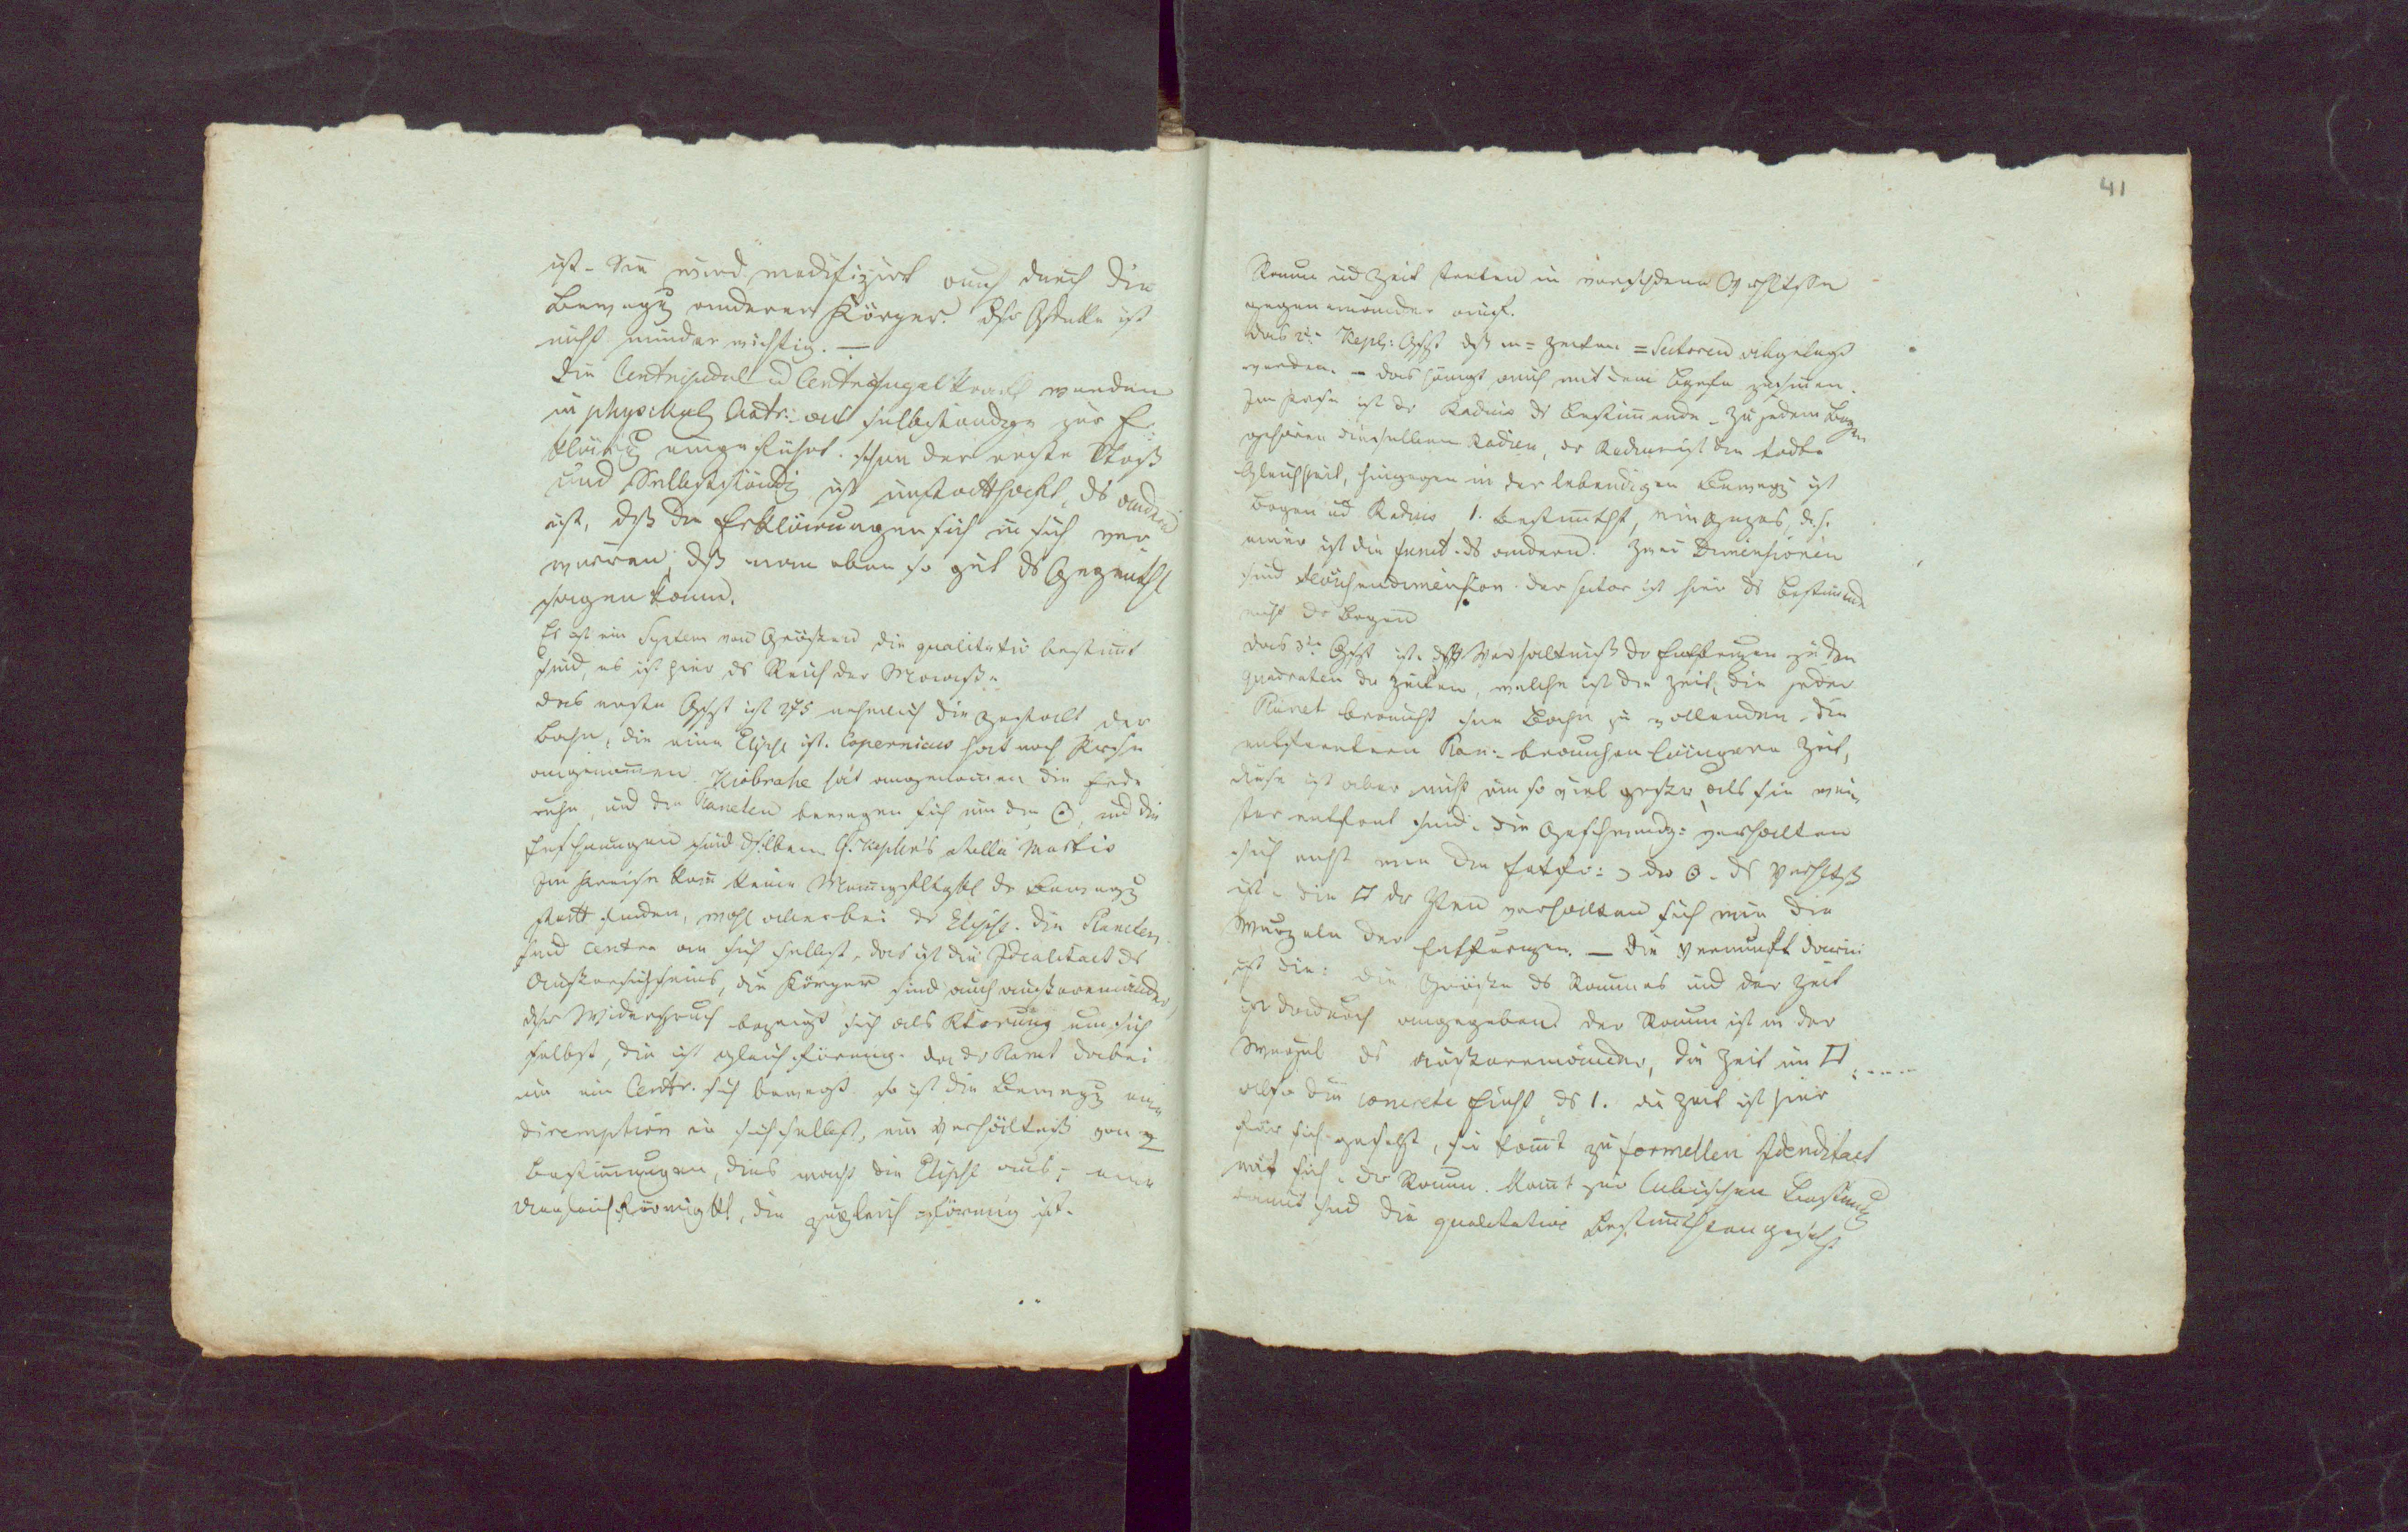 ist. Sie wird modifizirt auch durch die
Bewegg anderer Körper. Dser Gdanke ist
nicht minder wichtig. —
Die Centripetal u Centrifugalkraft werden
in physikal Astr: als selbständige zur Er-
klärug eingeführt. Schon der erste Stoß
und Selbstständig ist unstatthaft, ds andere
ist, dß die Erklärungen sich in sich ver
wirren, dß man eben so gut ds Gegentheil
sagen kann.
Es ist ein System von Größen die qualitativ bestimt
sind, es ist hier ds Reich der Maaße.
das erste Gstz ist nehmlich die Gestalt der
Bahn, die eine Elipse ist. Copernicus hat noch Kreise
angenommen. Tiobrahe hat angenommen die Erde
ruhe, und die Planeten bewegen sich um die ☉, und die
Erscheinungen sind dselben. Cf. Kepler's stella Martis
Im Kreise kann keine Mannigfltgkt dr Bewegg
statt finden, wohl aber bei dr Elipse. Die Planeten
sind Centra an sich selbst, das ist die Idealitaet ds
Außersichseins, die Körper sind auch außereinander,
dser Widerspruch bezeugt sich als um sich
selbst, die ist gleichförmig. da dr Planet dabei
um ein Centr. sich bewegt so ist die Bewegg eine
diremption in sich selbst, ein Verhältniß von 2
Bestimmungen, dies macht die Elipse aus; eine
Ungleichförmigktt, die zugleich gförmig ist.
41
Raum und Zeit treten in verschdene Verhltsse
gegen einander auf.
das 2te Kepl: Gstz dß in = Zeiten = Sectoren abgelegt
werden. – das hängt auch mit dem zusammen.
Im Kreise ist dr Radius ds Bestimmende. Zu jedem Bogen
gehören dieselben Radien, dr Radius ist die todte
Gleichheit, hingegen in der lebendigen Bewegg ist
Bogen und Radius 1. Bestimtht, ein Gzes, d. h.
einer ist die Funct. ds andern. Zwei Dimensionen
sind Flächendimension. der Sector ist hier ds Bestimende
nicht dr Bogen
das 3te Gstz ist, dß Verhältniß dr Entfernungen zu den
Quadraten dr Zeiten, welche ist die Zeit, die jeder
Planet braucht seine Bahn zu vollenden. die
entfernteren Plan: brauchen längere Zeit,
diese ist aber nicht um so viel größer als sie wei-
ter entfernt sind. Die Geschwindg: verhalten
sich nicht wie die Entfer: der ☉. ds Verhltß
ist. die □ dr Zten verhalten sich wie die
Wurzeln der Entfernungen. — Die Vernunft darin
ist die: die Größe ds Raumes und der Zeit
ist dadurch angegeben. der Raum ist in der
Wurzel ds außereinander, die Zeit im □, ----
also die concrete Einht, ds 1. die Zeit ist hier
für sich gesetzt, sie komt zu formellen Idenditaet
mit sich, dr Raum. komt zur Cubischen Bestimg
damit sind die qualitative